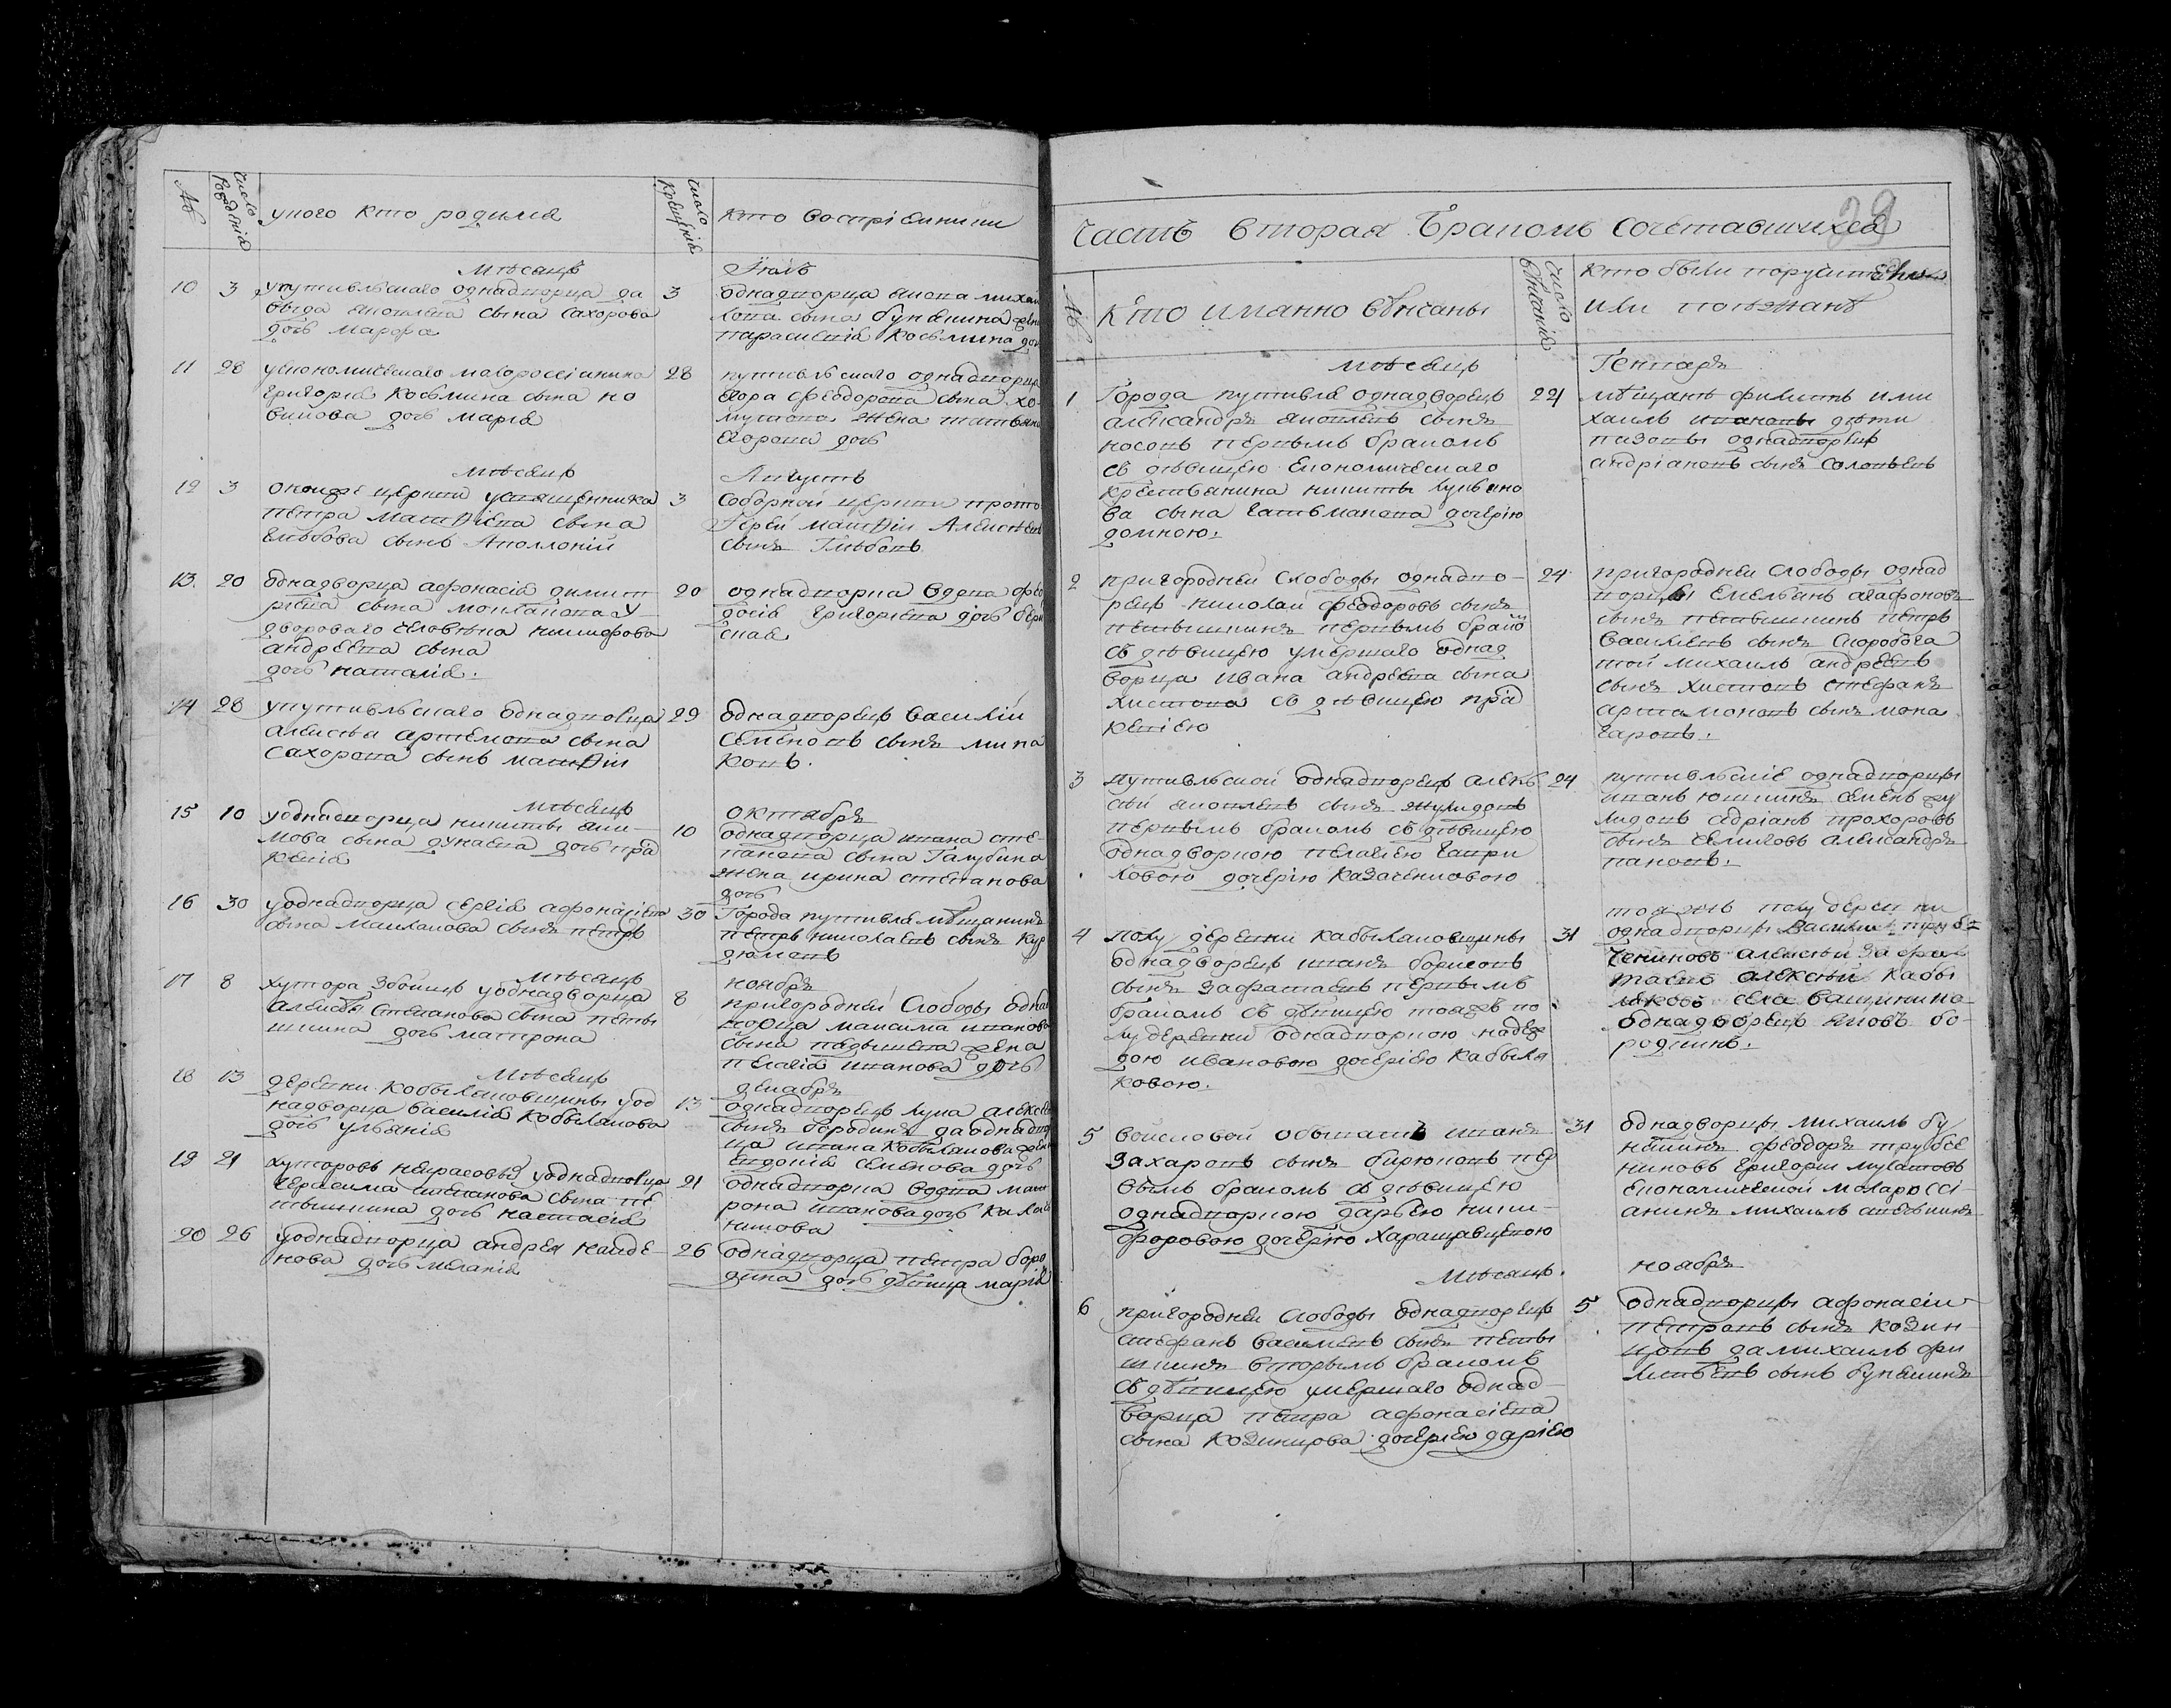 №
число рожденія
у кого кто родился
число крещенія
кто воспріемники
мѣсяцъ
Іюль
10 3 упутивльскаго однадворца да
выда яковлева сына сахорова
дочь марѳа
3 однадворца якова михаи
лова сына бунякина жена
параскевія косьмина дочь
11 28 уекономическаго малороссіянина
григорія косьмина сына но
викова дочь марія
28 путивльскаго однадворца
егора феодорова сына хо
мутова жена татьяна
егорова дочь
мѣсяцъ
Августъ
12 3 оноиже церкви усвященника
петра матѳіева сына
глѣбова сынъ Аполлоній
3 соборной церкви прото
Іерей матѳіи Алексѣевъ
сынъ Глѣбовъ
13 20 однадворца афонасія димит
ріева сына
двороваго человѣка никифора
андреева сына
дочь наталія.
20 однадворца вдова фео
досія григоріева дочь
14 28 упутивльскаго однадворца
алексѣя артемова сына
сахорова сынъ матѳіи
29 однадворецъ василіи
семеновъ сынъ мина
ковъ.
мѣсяцъ
октябрь
15 10 уоднадворца никиты яки
мова сына дунаева дочь пра
кевія
10 однадворца ивана сте
панова сына Галубина
жена ирина степанова
дочь
16 30 уоднадворца сергія афонасіева
сына маклакова сынъ петръ
30 Города путивля мѣщанинъ
петръ николаевъ сынъ кур
дюмовъ
мѣсяцъ
ноябрь
17 8 хутора збоищъ уоднадворца
алексѣя степанова сына петы
шкина дочь матрона
8 пригородней слободы однад
ворца максима иванова
сына жена
пелагія иванова дочь
мѣсяцъ
декабрь
18 13 деревни кобылаковщины уод
надворца василія кобылакова
дочь ульянія
13 однадворецъ лука алексеевъ
сынъ бородинъ да однадвор
ца ивана кобылакова жена
евдокія семенова дочь
19 21 хуторовъ некрасовыхъ уоднадворца
герасима степанова сына пе
тышкина дочь настасія
21 однадворца вдова мат
рона иванова дочь кала
шникова
20 26 уоднадворца андрея найде
нова дочь меланія
26 однадворца петра боро
дина дочь дѣвица марія
29
часть вторая Бракомъ сочетавшихся
№
кто иманно вѣнчаны
число вѣнчанія
кто были поручители
или поѣзжанѣ
мѣсяцъ
Генваря
1 Города путивля однадворецъ
александръ яковлевъ сынъ
носовъ первымъ бракомъ
съ дѣвицею економическаго
крестьянина никиты лукьяно
ва сына гатьманова дочерію
домною.
22 мѣщане филипъ ими
хаилъ ивановы дѣти
пазовы однадворецъ
андріановъ сынъ соловьевъ
2 пригородней слободы однадво
рецъ николай феодоровъ сынъ
петышкинъ первымъ брако
съ дѣвицею умершаго однад
ворца ивана андреева сына
хистова съ дѣвицею пра
кевіею
24 пригородней слободы однад
ворцы емельянъ агафоновъ
сынъ петышкинъ петръ
василіевъ сынъ скоробога
той михаилъ андреевъ
сынъ хистовъ стефанъ
артамоновъ сынъ мока
гаровъ.
3 путивльской однадворецъ алекъ
сѣй яковлевъ сынъ жулидовъ
первымъ бракомъ съ дѣвицею
однадворкою пелагіею гаври
ловою дочерію казаченковою
24 путивльскіе однадворцы
иванъ юшкинъ семенъ жу
лидовъ адріанъ прохоровъ
сынъ александръ
пановъ.
4 полу деревни кабылаковщины
однадворецъ иванъ борисовъ
сынъ зафатаевъ первымъ
бракомъ съ дѣвицею тояжъ по
лудеревни однадворкою надеж
дою ивановою дочеріею кабыла
ковою.
31 тоя жъ полу деревни
однадворцы василіи трубе
чениновъ алексѣй зафа
таевъ алексѣй кабы
лаковъ села вашинина
однадворецъ яковъ бо
родинъ.
5 воисковой обыватель иванъ
захаровъ сынъ бирюковъ пер
вымъ бракомъ съ дѣвицею
однадворкою дарьею ники
форовою дочерію
31 однадворцы михаилъ бу
накинъ феодоръ трубче
ниновъ григоріи мусатовъ
економической малоросcі
анинъ михаилъ
мѣсяцъ.
ноябрь
6 пригородней слободы однадворецъ
стефанъ василіевъ сынъ петы
шкинъ вторымъ бракомъ
съ дѣвицею умершаго однад
ворца петра афонасіева
сына козинцова дочеріею даріею
5 однадворцы афонасіи
петровъ сынъ козин
цовъ да михаилъ фи
липьевъ сынъ бунакинъ